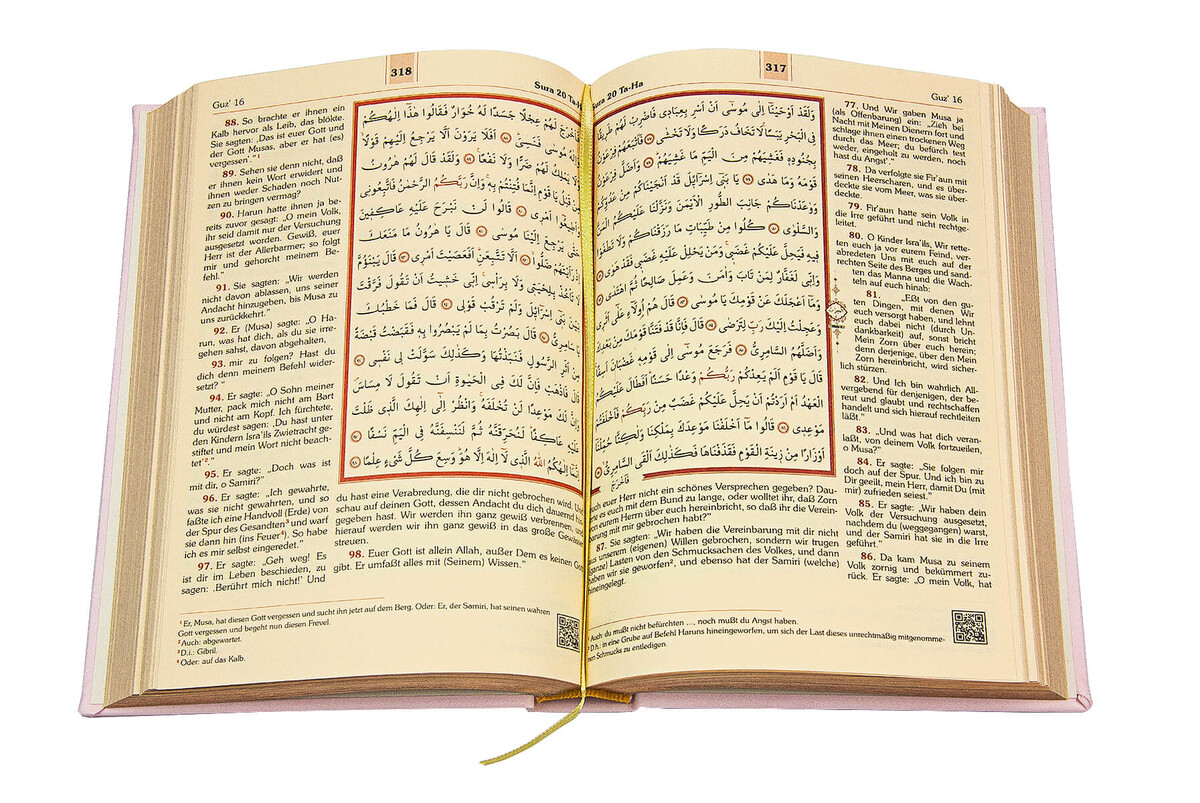 317
Sura 20 Ta-Ha
Guz' 16
وَلَقَدْ اَوْحَيْنَٓا اِلٰى مُوسٰٓى اَنْ اَسْرِ بِعِبَادٖى فَاضْرِبْ لَهُمْ طَرٖيقًا
فِى الْبَحْرِ يَبَسًا لَا تَخَافُ دَرَكًا وَلَا تَخْشٰى ﴿٧٧﴾ فَاَتْبَعَهُمْ فِرْعَوْنُ
بِجُنُودِهٖ فَغَشِيَهُمْ مِنَ الْيَمِّ مَا غَشِيَهُمْ ﴿٧٨﴾ وَاَضَلَّ فِرْعَوْنُ
قَوْمَهُ وَمَا هَدٰى ﴿٧٩﴾ يَا بَنٖٓى اِسْرَٓائٖلَ قَدْ اَنْجَيْنَاكُمْ مِنْ
وَوٰعَدْنَاكُمْ جَانِبَ الطُّورِ الْاَيْمَنَ وَنَزَّلْنَا عَلَيْكُمُ الْمَنَّ
وَالسَّلْوٰى ﴿٨٠﴾ كُلُوا مِنْ طَيِّبَاتِ مَا رَزَقْنَاكُمْ وَلَا تَطْغَوْا
فٖيهِ فَيَحِلَّ عَلَيْكُمْ غَضَبٖى وَمَنْ يَحْلِلْ عَلَيْهِ غَضَبٖى فَقَدْ هَوٰى ﴿٨١﴾
وَاِنّٖى لَغَفَّارٌ لِمَنْ تَابَ وَاٰمَنَ وَعَمِلَ صَالِحًا ثُمَّ اهْتَدٰى ﴿٨٢﴾
وَمَٓا اَعْجَلَكَ عَنْ قَوْمِكَ يَا مُوسٰى ﴿٨٣﴾ قَالَ هُمْ اُولَٓاءِ عَلٰٓى اَثَرٖى
وَعَجِلْتُ اِلَيْكَ رَبِّ لِتَرْضٰى ﴿٨٤﴾ قَالَ فَاِنَّا قَدْ فَتَنَّا قَوْمَكَ مِنْ بَعْدِكَ
وَاَضَلَّهُمُ السَّامِرِىُّ ﴿٨٥﴾ فَرَجَعَ مُوسٰٓى اِلٰى قَوْمِهٖ غَضْبَانَ اَسِفًا
قَالَ يَا قَوْمِ اَلَمْ يَعِدْكُمْ رَبُّكُمْ وَعْدًا حَسَنًا اَفَطَالَ عَلَيْكُمُ
الْعَهْدُ اَمْ اَرَدْتُمْ اَنْ يَحِلَّ عَلَيْكُمْ غَضَبٌ مِنْ رَبِّكُمْ فَاَخْلَفْتُمْ
مَوْعِدٖى ﴿٨٦﴾ قَالُوا مَٓا اَخْلَفْنَا مَوْعِدَكَ بِمَلْكِنَا وَلٰكِنَّا حُمِّلْنَٓا
اَوْزَارًا مِنْ زٖينَةِ الْقَوْمِ فَقَذَفْنَاهَا فَكَذٰلِكَ اَلْقَى السَّامِرِىُّ ﴿٨٧﴾
فَاَخْرَجَ
77. Und Wir gaben Musa ja
(als Offenbarung) ein: „Zieh bei
Nacht mit Meinen Dienern fort und
schlage ihnen einen trockenen Weg
durch das Meer; du befürch test
weder, eingeholt zu werden, noch
hast du Angst¹.“
78. Da verfolgte sie Fir'aun mit
seinen Heerscharen, und es über-
deckte sie vom Meer, was sie über-
deckte.
79. Fir'aun hatte sein Volk in
die Irre geführt und nicht rechtge-
leitet.
80. O Kinder Isra'ils, Wir rette-
ten euch ja vor eurem Feind, ver-
abredeten Uns mit euch auf der
rechten Seite des Berges und sand-
ten das Manna und die Wach-
teln auf euch hinab:
81. „Eßt von den gu-
ten Dingen, mit denen Wir
euch versorgt haben, und lehnt
euch dabei nicht (durch Un-
dankbarkeit) auf, sonst bricht
Mein Zorn über euch herein;
denn derjenige, über den Mein
Zorn hereinbricht, wird sicher-
lich stürzen.
82. Und Ich bin wahrlich All-
vergebend für denjenigen, der be-
reut und glaubt und rechtschaffen
handelt und sich hierauf rechtleiten
läßt.“
83. „Und was hat dich veran-
laßt, von deinem Volk fortzueilen,
o Musa?“
84. Er sagte: „Sie folgen mir
doch auf der Spur. Und ich bin zu
Dir geeilt, mein Herr, damit Du (mit
mir) zufrieden seiest.“
85. Er sagte: „Wir haben dein
Volk der Versuchung ausgesetzt,
nachdem du (weggegangen) warst,
und der Samiri hat sie in die Irre
geführt.“
86. Da kam Musa zu seinem
Volk zornig und bekümmert zu-
rück. Er sagte: „O mein Volk, hat
euch euer Herr nicht ein schönes Versprechen gegeben? Dau-
erte es euch mit dem Bund zu lange, oder wolltet ihr, daß Zorn
von eurem Herrn über euch hereinbricht, so daß ihr die Verein-
barung mit mir gebrochen habt?“
87. Sie sagten: „Wir haben die Vereinbarung mit dir nicht
aus unserem (eigenen) Willen gebrochen, sondern wir trugen
(ganze) Lasten von den Schmucksachen des Volkes, und dann
haben wir sie geworfen², und ebenso hat der Samiri (welche)
hineingelegt.
Auch: du mußt nicht befürchten ..., noch mußt du Angst haben.
D.h.: in eine Grube auf Befehl Haruns hineingeworfen, um sich der Last dieses unrechtmäßig mitgenomme-
nen Schmucks zu entledigen.
318
Guz' 16
Sura 20 Ta-H
فَاَخْرَجَ لَهُمْ عِجْلًا جَسَدًا لَهُ خُوَارٌ فَقَالُوا هٰذَٓا اِلٰهُكُمْ
وَاِلٰهُ مُوسٰى فَنَسِىَ ﴿٨٨﴾ اَفَلَا يَرَوْنَ اَلَّا يَرْجِعُ اِلَيْهِمْ قَوْلًا
وَلَا يَمْلِكُ لَهُمْ ضَرًّا وَلَا نَفْعًا ﴿٨٩﴾ وَلَقَدْ قَالَ لَهُمْ هٰرُونُ
مِنْ قَبْلُ يَا قَوْمِ اِنَّمَا فُتِنْتُمْ بِهٖ وَاِنَّ رَبَّكُمُ الرَّحْمٰنُ فَاتَّبِعُونٖى
وَاَطٖيعُٓوا اَمْرٖى ﴿٩٠﴾ قَالُوا لَنْ نَبْرَحَ عَلَيْهِ عَاكِفٖينَ
حَتّٰى يَرْجِعَ اِلَيْنَا مُوسٰى ﴿٩١﴾ قَالَ يَا هٰرُونُ مَا مَنَعَكَ
اِذْ رَاَيْتَهُمْ ضَلُّوا ﴿٩٢﴾ اَلَّا تَتَّبِعَنِ اَفَعَصَيْتَ اَمْرٖى ﴿٩٣﴾ قَالَ يَبْنَؤُمَّ
لَا تَاْخُذْ بِلِحْيَتٖى وَلَا بِرَاْسٖى اِنّٖى خَشٖيتُ اَنْ تَقُولَ فَرَّقْتَ
بَيْنَ بَنٖٓى اِسْرَٓائٖلَ وَلَمْ تَرْقُبْ قَوْلٖى ﴿٩٤﴾ قَالَ فَمَا خَطْبُكَ
يَا سَامِرِىُّ ﴿٩٥﴾ قَالَ بَصُرْتُ بِمَا لَمْ يَبْصُرُوا بِهٖ فَقَبَضْتُ قَبْضَةً
مِنْ اَثَرِ الرَّسُولِ فَنَبَذْتُهَا وَكَذٰلِكَ سَوَّلَتْ لٖى نَفْسٖى ﴿٩٦﴾
قَالَ فَاذْهَبْ فَاِنَّ لَكَ فِى الْحَيٰوةِ اَنْ تَقُولَ لَا مِسَاسَ
وَاِنَّ لَكَ مَوْعِدًا لَنْ تُخْلَفَهُ وَانْظُرْ اِلٰٓى اِلٰهِكَ الَّذٖى ظَلْتَ
عَلَيْهِ عَاكِفًا لَنُحَرِّقَنَّهُ ثُمَّ لَنَنْسِفَنَّهُ فِى الْيَمِّ نَسْفًا ﴿٩٧﴾
اِنَّمَٓا اِلٰهُكُمُ اللّٰهُ الَّذٖى لَٓا اِلٰهَ اِلَّا هُوَ وَسِعَ كُلَّ شَىْءٍ عِلْمًا ﴿٩٨﴾
88. So brachte er ihnen ein
Kalb hervor als Leib, das blökte.
Sie sagten: ‚Das ist euer Gott und
der Gott Musas, aber er hat (es)
vergessen‘.“¹
89. Sehen sie denn nicht, daß
er ihnen kein Wort erwidert und
ihnen weder Schaden noch Nut-
zen zu bringen vermag?
90. Harun hatte ihnen ja be-
reits zuvor gesagt: „O mein Volk,
ihr seid damit nur der Versuchung
ausgesetzt worden. Gewiß, euer
Herr ist der Allerbarmer; so folgt
mir und gehorcht meinem Be-
fehl.“
91. Sie sagten: „Wir werden
nicht davon ablassen, uns seiner
Andacht hinzugeben, bis Musa zu
uns zurückkehrt.“
92. Er (Musa) sagte: „O Ha-
run, was hat dich, als du sie irre-
gehen sahst, davon abgehalten,
93. mir zu folgen? Hast du
dich denn meinem Befehl wider-
setzt? “
94. Er sagte: „O Sohn meiner
Mutter, pack mich nicht am Bart
und nicht am Kopf. Ich fürchtete,
du würdest sagen: ‚Du hast unter
den Kindern Isra'ils Zwietracht ge-
stiftet und mein Wort nicht beach-
tet‘².“
95. Er sagte: „Doch was ist
mit dir, o Samiri?“
96. Er sagte: „Ich gewahrte,
was sie nicht gewahrten, und so
faßte ich eine Handvoll (Erde) von
der Spur des Gesandten³ und warf
sie dann hin (ins Feuer⁴). So habe
ich es mir selbst eingeredet.“
97. Er sagte: „Geh weg! Es
ist dir im Leben beschieden, zu
sagen: ‚Berührt mich nicht!‘ Und
du hast eine Verabredung, die dir nicht gebrochen wird. Und
schau auf deinen Gott, dessen Andacht du dich dauernd hin-
gegeben hast. Wir werden ihn ganz gewiß verbrennen, und
hierauf werden wir ihn ganz gewiß in das große Gewässer
streuen.
98. Euer Gott ist allein Allah, außer Dem es keinen Gott
gibt. Er umfaßt alles mit (Seinem) Wissen.“
¹ Er, Musa, hat diesen Gott vergessen und sucht ihn jetzt auf dem Berg. Oder: Er, der Samiri, hat seinen wahren
Gott vergessen und begeht nun diesen Frevel.
² Auch: abgewartet.
³ D.i.: Gibril.
⁴ Oder: auf das Kalb.